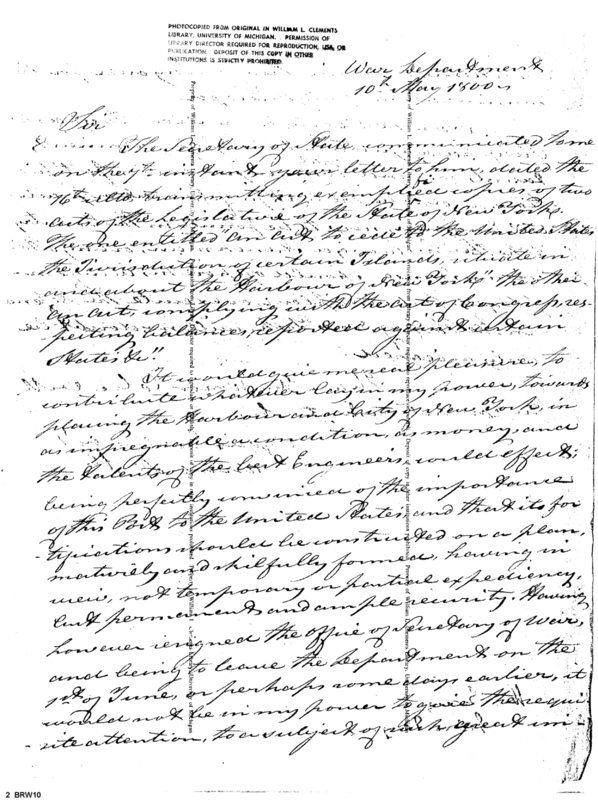 PHOTOCOPIED FROM ORIGINAL IN WILLIAM L. CLEMENTS
LIBRARY, UNIVERSITY OF MICHIGAN. PERMISSION OF
LIBRARY DIRECTOR REQUIRED FOR REPRODUCTION, USE, OR
PUBLICATION. DEPOSIT OF THIS COPY IN OTHER
INSTITUTIONS IS STRICTLY PROHIBITED.
War Department
10th May 1800
Sir
The Secretary of State, communicated to me
on the 7th instant your letter to him, dated the
16th ulto. transmitting exemplied copies of two
acts of the Legislative of the State of New York,
The one entitled "an act to cede to the United States
the Jurisdiction of certain Islands, situate in
and about the Harbour of New York" the other
"an act, complying with the act of Congress, res-
pecting balances, reported against certain
States &c"
It would give me real pleasure, to
contribute whatever lay in my power, towards
placing the Harbour and City of New York, in
as impregnable a condition, as money, and
the talents of the best Engineers could effect;
being perfectly convinced of the importance
of this Port to the United States, and that its for
-tifications should be constructed on a plan,
maturely and skilfully formed, having in
view, not temporary or partial expediency,
but permanent and ample security. Having
however resigned the office of Secretary of War,
and being to leave the Department on the
1st of June, or perhaps some days earlier, it
would not be in my power to give the requi
-site attention, to a subject of such great im-
2 BRW10